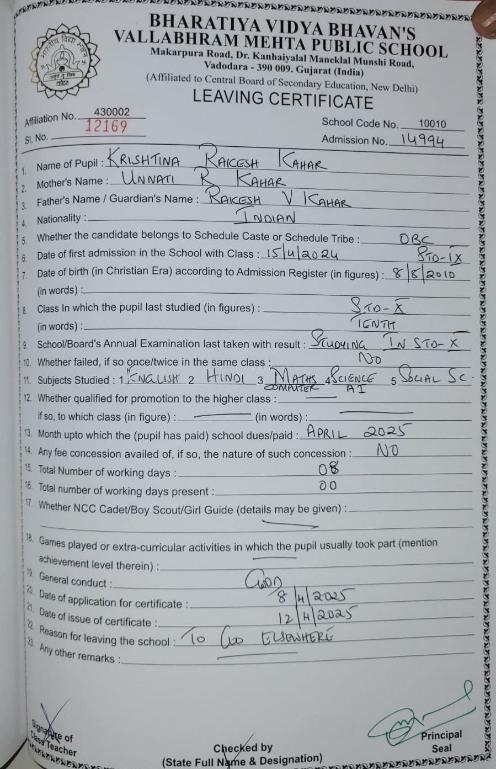 BHARATIYA VIDYA BHAVAN'S
VALLABHRAM MEHTA PUBLIC SCHOOL
Makarpura Road, Dr. Kanhaiyalal Maneklal Munshi Road,
Vadodara - 390 009. Gujarat (India)
(Affiliated to Central Board of Secondary Education, New Delhi)
LEAVING CERTIFICATE
Affiliation No. 430002 School Code No. 10010
Sl. No. 12169 Admission No. 14994
1. Name of Pupil : KRISHTINA RAKESH KAHAR
2. Mother's Name : UNNATI R KAHAR
3. Father's Name / Guardian's Name : RAKESH V KAHAR
4. Nationality : INDIAN
5. Whether the candidate belongs to Schedule Caste or Schedule Tribe : OBC
6. Date of first admission in the School with Class : 15/4/2024 STD-IX
7. Date of birth (in Christian Era) according to Admission Register (in figures) : 8/8/2010
(in words) :
8. Class In which the pupil last studied (in figures) : STD-X
(in words) : TENTH
9. School/Board's Annual Examination last taken with result : STUDYING IN STD-X
10. Whether failed, if so once/twice in the same class : NO
11. Subjects Studied : 1 ENGLISH 2 HINDI 3 MATHS 4 SCIENCE 5 SOCIAL SC.
COMPUTER AI
12. Whether qualified for promotion to the higher class :
if so, to which class (in figure) : (in words) :
13. Month upto which the (pupil has paid) school dues/paid : APRIL 2025
14. Any fee concession availed of, if so, the nature of such concession : NO
15. Total Number of working days : 08
16. Total number of working days present : 00
17. Whether NCC Cadet/Boy Scout/Girl Guide (details may be given) :
18. Games played or extra-curricular activities in which the pupil usually took part (mention
achievement level therein) :
19. General conduct : GOOD
20. Date of application for certificate : 8/4/2025
21. Date of issue of certificate : 12/4/2025
22. Reason for leaving the school : TO GO ELSEWHERE
23. Any other remarks :
Signature of Class Teacher
Checked by
(State Full Name & Designation)
Principal
Seal